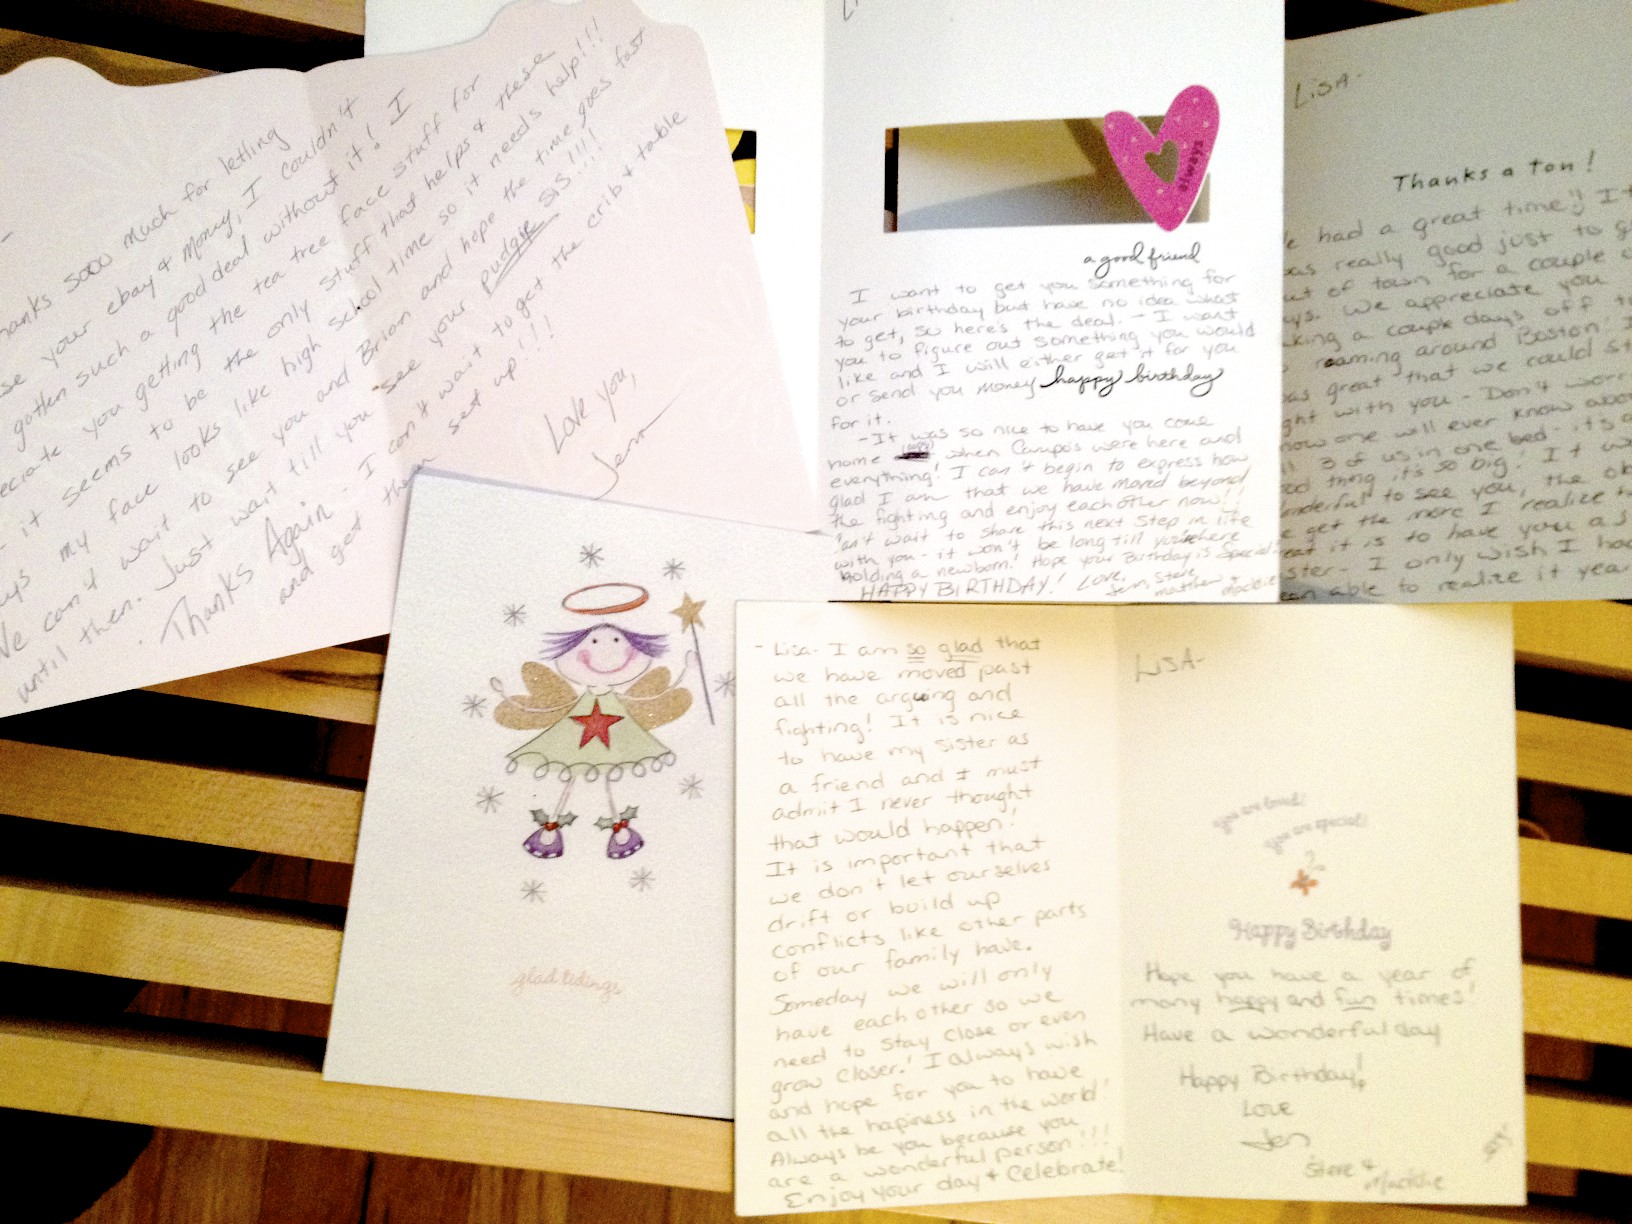 Thanks sooo much for letting
use your ebay & money, I couldn't
gotten such a good deal without it! I
appreciate you getting the tea tree face stuff for
it seems to be the only stuff that helps & these
days my face looks like high school time so it needs help!!!
We can't wait to see you and Brian and hope the time goes fast
until then. Just wait till you see your pudgie sis!!!!
Thanks Again - I can't wait to get the crib & table
and get them set up!!!
Love you,
Jenn
always
a good friend
I want to get you something for
your birthday but have no idea what
to get, so here's the deal. - I want
you to figure out something you would
like and I will either get it for you
or send you money happy birthday
for it.
- It was so nice to have you come
home when Campo's were here and
everything! I can't begin to express how
glad I am that we have moved beyond
the fighting and enjoy each other now!!
Can't wait to share this next step in life
with you - it won't be long till you're here
holding a newborn! Hope your Birthday is special -
HAPPY BIRTHDAY! Love,
Jenn, Steve,
Matthew &
Mackie
LISA-
Thanks a ton!
We had a great time!! It
was really good just to g
out of town for a couple
days. We appreciate you
taking a couple days off t
roaming around Boston.
was great that we could st
night with you - Don't worr
now one will ever know abo
all 3 of us in one bed - it's a
good thing it's so big! It w
wonderful to see you, the ol
get the more I realize h
great it is to have you as
sister - I only wish I ha
been able to realize it year
glad tidings
- Lisa - I am so glad that
we have moved past
all the arguing and
fighting! It is nice
to have my sister as
a friend and I must
admit I never thought
that would happen!
It is important that
we don't let ourselves
drift or build up
conflicts like other parts
of our family have.
Someday we will only
have each other so we
need to stay close or even
grow closer! I always wish
and hope for you to have
all the hapiness in the world!
Always be you because you
are a wonderful person!!!
Enjoy your day & Celebrate!
LISA-
you are loved!
you are special!
Happy Birthday
Hope you have a year of
many happy and fun times!
Have a wonderful day
Happy Birthday!
Love
Jen
Steve &
Mackie